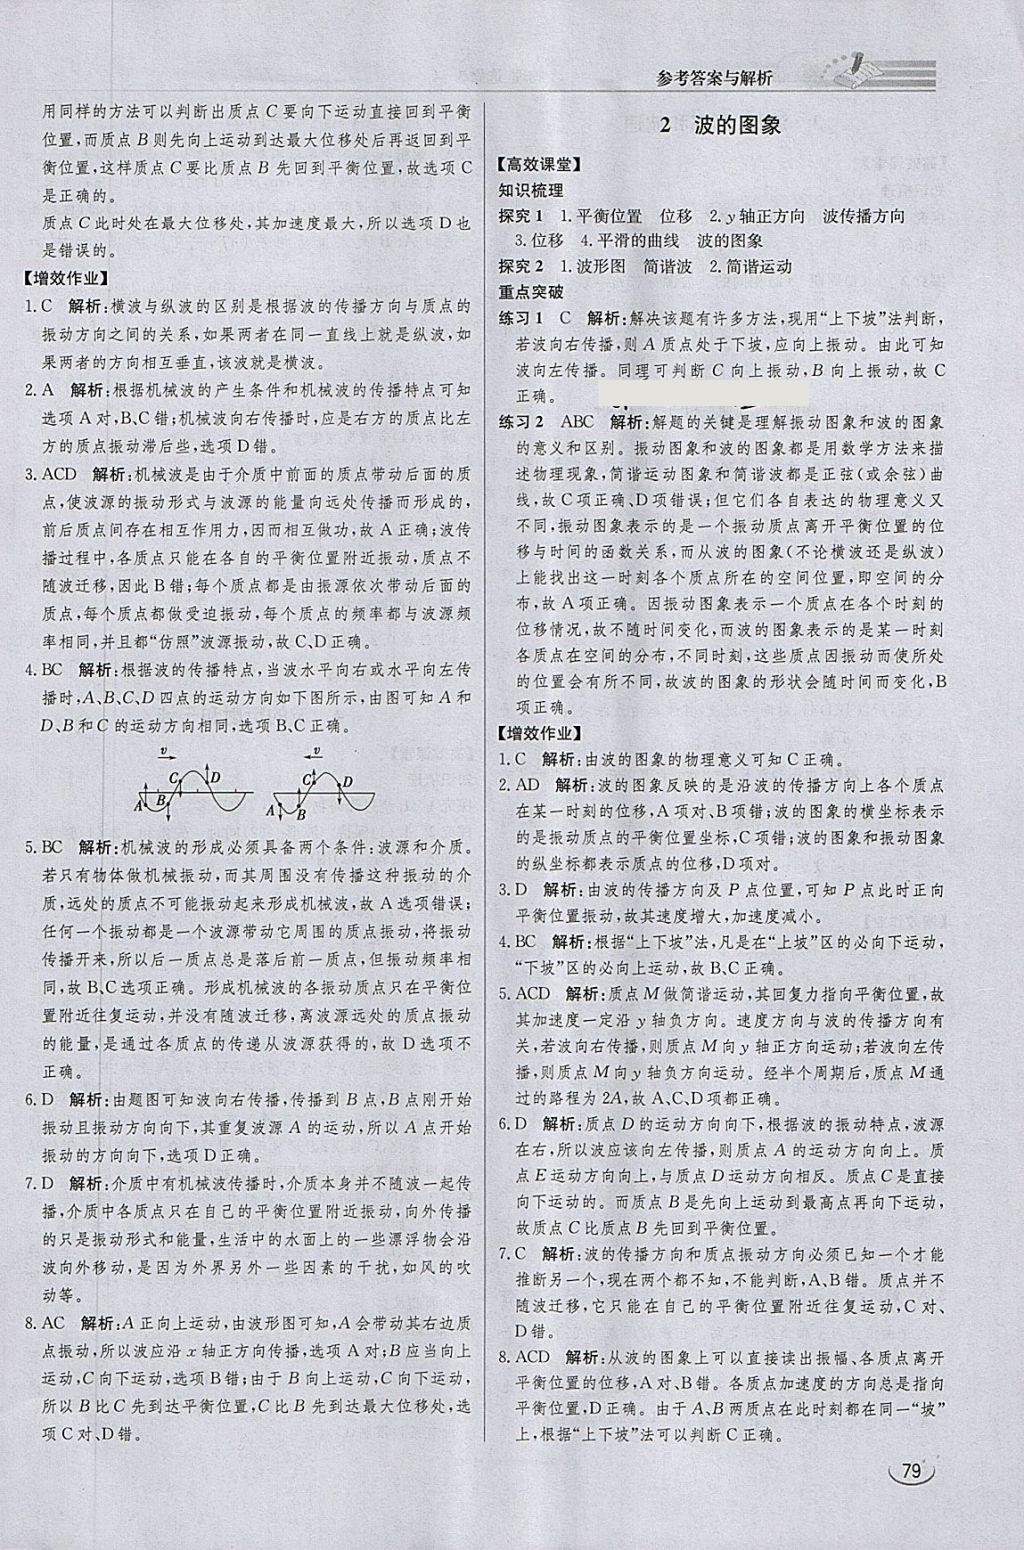 参考答案与解析
用同样的方法可以判断出质点C要向下运动直接回到平衡
位置,而质点B则先向上运动到达最大位移处后再返回到平
衡位置,这样质点C要比质点B先回到平衡位置,故选项C
是正确的。
质点C此时处在最大位移处,其加速度最大,所以选项D也
是错误的。
【增效作业】
1.C 解析:横波与纵波的区别是根据波的传播方向与质点的
振动方向之间的关系,如果两者在同一直线上就是纵波,如
果两者的方向相互垂直,该波就是横波。
2.A 解析:根据机械波的产生条件和机械波的传播特点可知
选项A对,B、C错;机械波向右传播时,应是右方的质点比左
方的质点振动滞后些,选项D错。
3.ACD 解析:机械波是由于介质中前面的质点带动后面的质
点,使波源的振动形式与波源的能量向远处传播而形成的,
前后质点间存在相互作用力,因而相互做功,故A正确;波传
播过程中,各质点只能在各自的平衡位置附近振动,质点不
随波迁移,因此B错;每个质点都是由振源依次带动后面的
质点,每个质点都做受迫振动,每个质点的频率都与波源频
率相同,并且都“仿照”波源振动,故C、D正确。
4.BC 解析:根据波的传播特点,当波水平向右或水平向左传
播时,A、B、C、D四点的运动方向如下图所示,由图可知A和
D、B和C的运动方向相同,选项B、C正确。
v v
C D C D
A B A B
5.BC 解析:机械波的形成必须具备两个条件:波源和介质。
若只有物体做机械振动,而其周围没有传播这种振动的介
质,远处的质点不可能振动起来形成机械波,故A选项错误;
任何一个振动都是一个波源带动它周围的质点振动,将振动
传播开来,所以后一质点总是落后前一质点,但振动频率相
同,故B、C选项正确。形成机械波的各振动质点只在平衡位
置附近往复运动,并没有随波迁移,离波源远处的质点振动
的能量,是通过各质点的传递从波源获得的,故D选项不
正确。
6.D 解析:由题图可知波向右传播,传播到B点,B点刚开始
振动且振动方向向下,其重复波源A的运动,所以A点开始
振动的方向向下,选项D正确。
7.D 解析:介质中有机械波传播时,介质本身并不随波一起传
播,介质中各质点只在自己的平衡位置附近振动,向外传播
的只是振动形式和能量,生活中的水面上的一些漂浮物会沿
波向外移动,是因为外界另外一些因素的干扰,如风的吹
动等。
8.AC 解析:A正向上运动,由波形图可知,A会带动其右边质
点振动,所以波应沿x轴正方向传播,选项A对;B应当向上
运动,C向下运动,选项B错;由于B向上运动,C向下运动,
所以B比C先到达平衡位置,C比B先到达最大位移处,选
项C对、D错。
2 波的图象
【高效课堂】
知识梳理
探究1 1.平衡位置 位移 2.y轴正方向 波传播方向
3.位移 4.平滑的曲线 波的图象
探究2 1.波形图 简谐波 2.简谐运动
重点突破
练习1 C 解析:解决该题有许多方法,现用“上下坡”法判断,
若波向右传播,则A质点处于下坡,应向上振动。由此可知
波向左传播。同理可判断C向上振动,B向上振动,故C
正确。
练习2 ABC 解析:解题的关键是理解振动图象和波的图象
的意义和区别。振动图象和波的图象都是用数学方法来描
述物理现象,简谐运动图象和简谐波都是正弦(或余弦)曲
线,故C项正确、D项错误;但它们各自表达的物理意义又
不同,振动图象表示的是一个振动质点离开平衡位置的位
移与时间的函数关系,而从波的图象(不论横波还是纵波)
上能找出这一时刻各个质点所在的空间位置,即空间的分
布,故A项正确。因振动图象表示一个质点在各个时刻的
位移情况,故不随时间变化,而波的图象表示的是某一时刻
各质点在空间的分布,不同时刻,这些质点因振动而使所处
的位置会有所不同,故波的图象的形状会随时间而变化,B
项正确。
【增效作业】
1.C 解析:由波的图象的物理意义可知C正确。
2.AD 解析:波的图象反映的是沿波的传播方向上各个质点
在某一时刻的位移,A项对、B项错;波的图象的横坐标表示
的是振动质点的平衡位置坐标,C项错;波的图象和振动图象
的纵坐标都表示质点的位移,D项对。
3.D 解析:由波的传播方向及P点位置,可知P点此时正向
平衡位置振动,故其速度增大,加速度减小。
4.BC 解析:根据“上下坡”法,凡是在“上坡”区的必向下运动,
“下坡”区的必向上运动,故B、C正确。
5.ACD 解析:质点M做简谐运动,其回复力指向平衡位置,故
其加速度一定沿y轴负方向。速度方向与波的传播方向有
关,若波向右传播,则质点M向y轴正方向运动;若波向左传
播,则质点M向y轴负方向运动。经半个周期后,质点M通
过的路程为2A,故A、C、D项都正确。
6.D 解析:质点D的运动方向向下,根据波的振动特点,波源
在右,所以波应该向左传播,则质点A的运动方向向上。质
点E运动方向向上,与质点D运动方向相反。质点C是直接
向下运动的。而质点B是先向上运动到最高点再向下运动,
故质点C比质点B先回到平衡位置。
7.C 解析:波的传播方向和质点振动方向必须已知一个才能
推断另一个,现在两个都不知,不能判断,A、B错。质点并不
随波迁移,它只能在自己的平衡位置附近往复运动,C对、
D错。
8.ACD 解析:从波的图象上可以直接读出振幅、各质点离开
平衡位置的位移,A对、B错。各质点加速度的方向总是指向
平衡位置,D正确。由于A、B两质点在此时刻都在同一“坡”
上,根据“上下坡”法可以判断C正确。
79